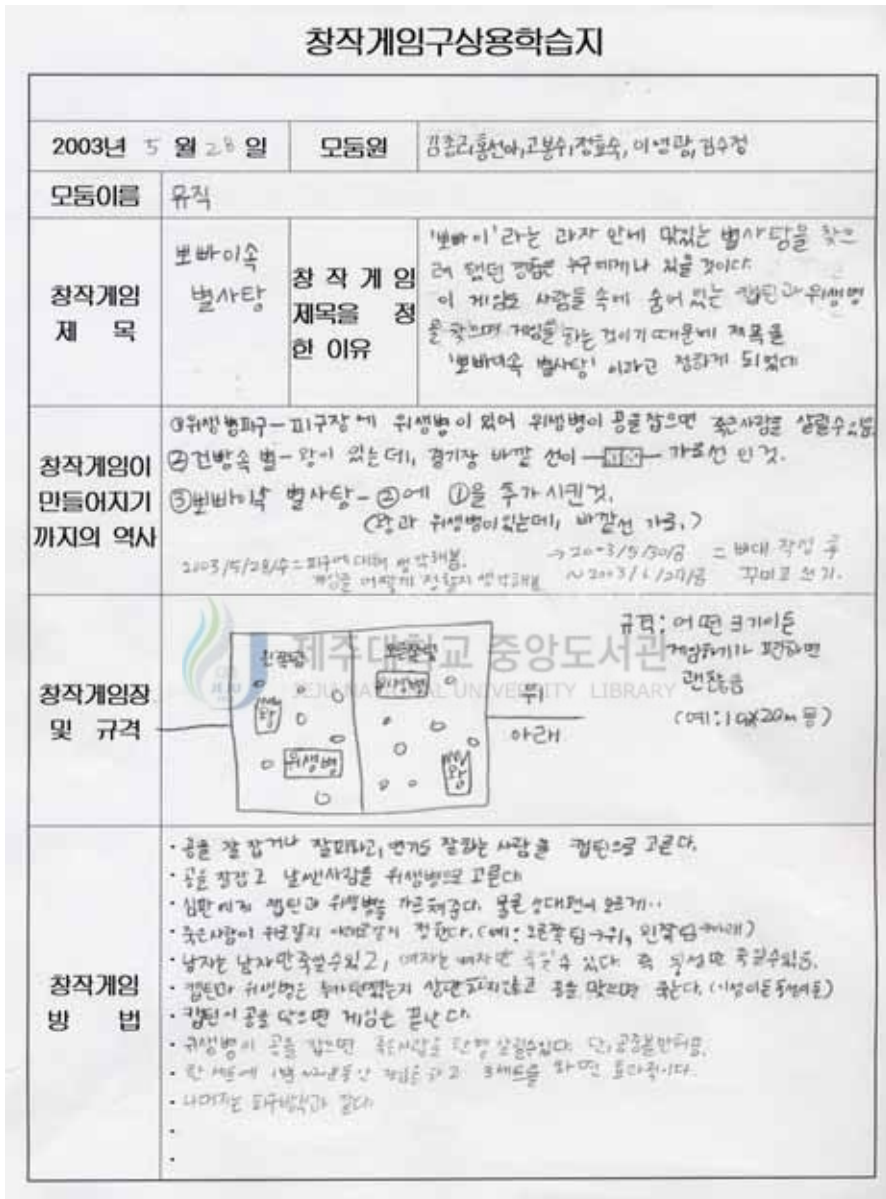 창작게임구상용학습지
2003년 5월 28일 모둠원 홍선아, 고봉수, 정효숙, 이영광, 김수정
모둠이름 뮤직
창작게임 제 목
뽀빠이속
별사탕
창 작 게 임
제목을 정
한 이유
'뽀빠이'라는 과자 안에 맛있는 별사탕을 찾으
려 했던 경험은 누구에게나 있을 것이다.
이 게임도 사람들 속에 숨어 있는 캡틴과 위생병
을 찾으며 게임을 하는 것이기 때문에 제목을
'뽀빠이속 별사탕' 이라고 정하게 되었다
창작게임이
만들어지기
까지의 역사
①위생병피구-피구장에 위생병이 있어 위생병이 공을 잡으면 죽은사람을 살릴수있음.
②건빵속 별-왕이 있는데, 경기장 바깥 선이 가로선 인것.
③뽀빠이속 별사탕-②에 ①을 추가 시킨것.
(왕과 위생병이있는데, 바깥선 가로.)
2003/5/28/수=피구에 대해 생각해봄.
게임을 어떻게 진행할지 생각해봄
→2003/5/30/금 = 뼈대 작성
~2003/6/27/금 꾸미고 쓰기.
창작게임장
및 규격
왼쪽팀
오른쪽팀
위생병
왕
위생병
왕
위
아래
규격: 어떤 크기이든
게임하기가 편하면
괜찮음
제주대학교 중앙도서관
JEJU NATIONAL UNIVERSITY LIBRARY
창작게임
방 법
· 공을 잘 잡거나 잘피하고, 연기도 잘하는 사람을 캡틴으로 고른다.
· 공을 잘잡고 날쌘사람을 위생병으로 고른다
· 심판에게 캡틴과 위생병을 가르쳐준다. 물론 상대편이 모르게..
· 죽은사람이 위로갈지 아래로갈지 정한다. (예: 오른쪽팀→위, 왼쪽팀→아래)
· 남자는 남자만 죽일수있고, 여자는 여자만 죽일수 있다. 즉 동성만 죽일수있음.
· 캡틴과 위생병은 상관하지않고 공을 맞으면 죽는다. (이성이든동성이든)
· 캡틴이 공을 맞으면 게임은 끝난다.
· 위생병이 공을 잡으면 죽은사람을 한명 살릴수있다. 단, 공중볼만허용.
· 한 세트에 동안 게임을 하고 3세트를 하면 효과적이다.
· 나머지는 피구방식과 같다.